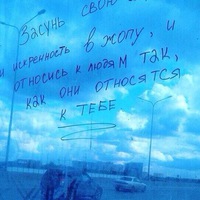 Засунь свою
и искренность в жопу, и
относись к людям так,
как они относятся
к ТЕБЕ